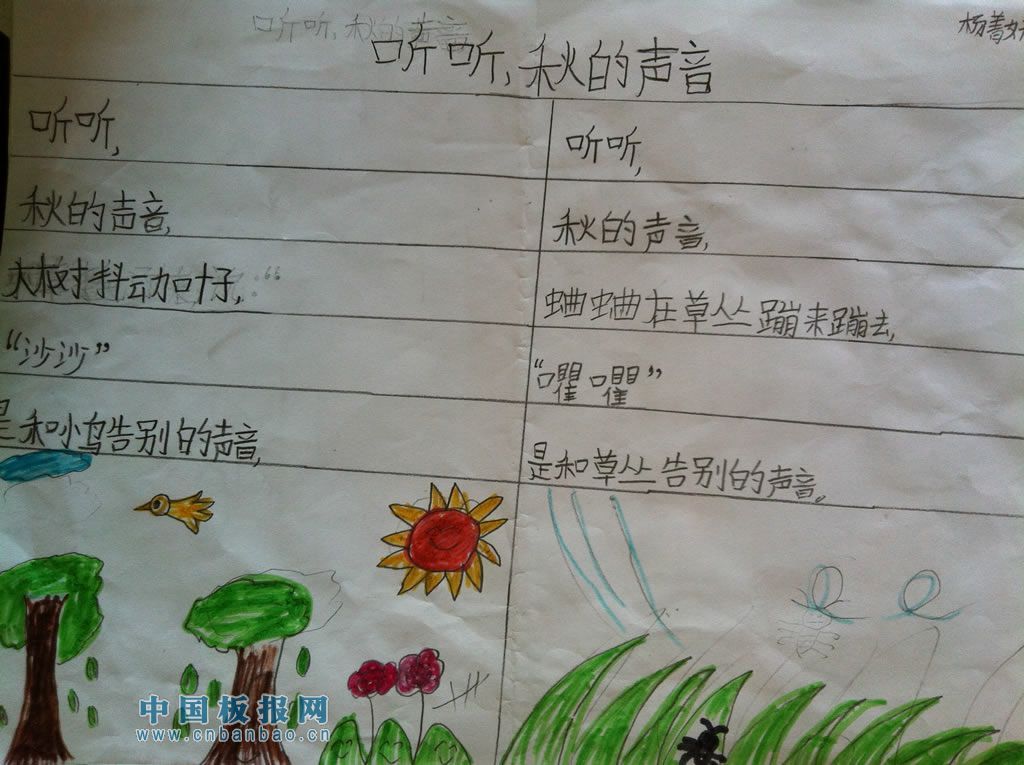 听听,秋的声音
听听,秋的声音
听听,
秋的声音,
大树抖动叶子,“
“沙沙”
是和小鸟告别的声音,
听听,
秋的声音,
蛐蛐在草丛蹦来蹦去,
“嚁嚁”
是和草丛告别的声音。
中国板报网
www.cnbanbao.cn